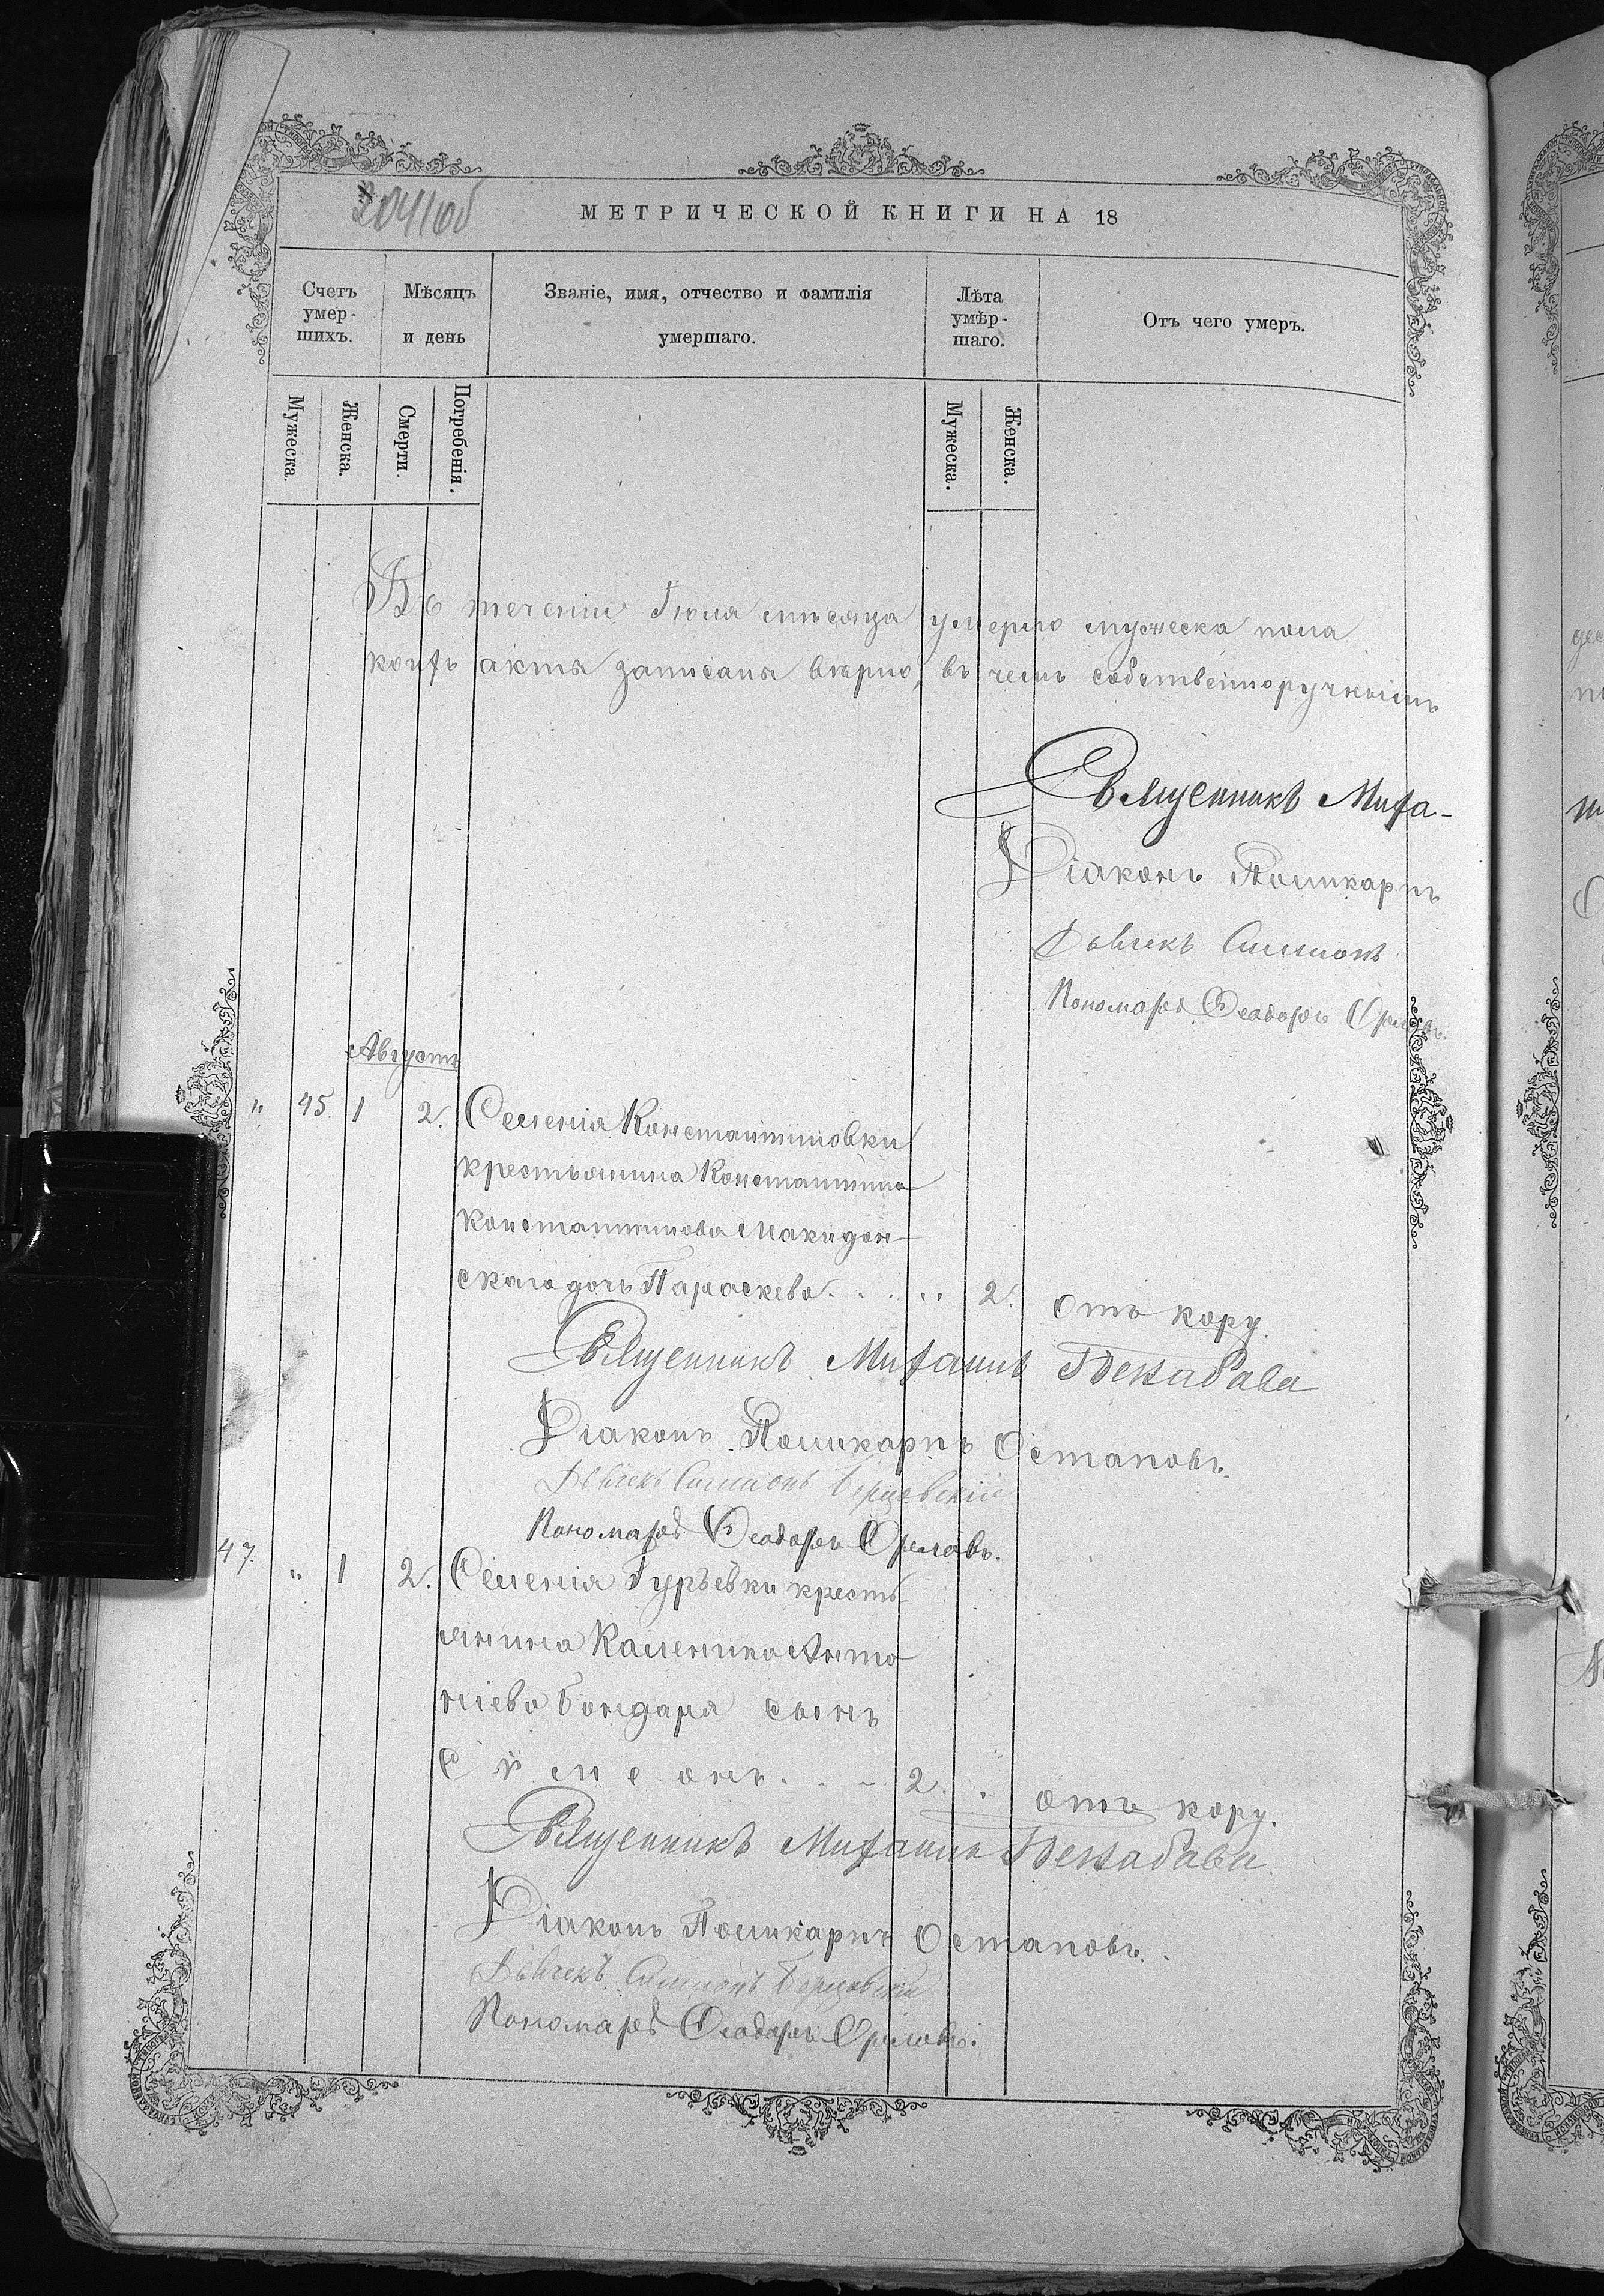 204 об
МЕТРИЧЕСКОЙ КНИГИ НА 18
Счетъ умер-шихъ.
Мѣсяцъ и день
Званіе, имя, отчество и фамилія умершаго.
Лѣта умѣр-шаго.
Отъ чего умеръ.
Мужеска.
Женска.
Смерти.
Погребенія.
Мужеска.
Женска.
Въ теченіи Іюля мѣсяца умерло мужеска пола
коихъ акты записаны вѣрно, въ чемъ собственноручнымъ
Священникъ Миха-
Діаконъ Поликарпъ
Дьячекъ Симеонъ
Пономарь Ѳеодоръ Орловъ.
Августъ
" 45. 1 2. Селенія Константиновки
крестьянина Константина
Константинова Македон-
скаго дочь Параскева . . . " 2. отъ кору.
Священникъ Михаилъ
Діаконъ Поликарпъ Остаповъ.
Дьячекъ Симеонъ
Пономарь Ѳеодоръ Орловъ.
47. " 1 2. Селенія Гурьевки кресть-
янина Каленика Анто-
ніева Бондаря сынъ
Сѵмеонъ . . . 2. " отъ кору.
Священникъ Михаилъ
Діаконъ Поликарпъ Остаповъ.
Дьячекъ Симеонъ
Пономарь Ѳеодоръ Орловъ.